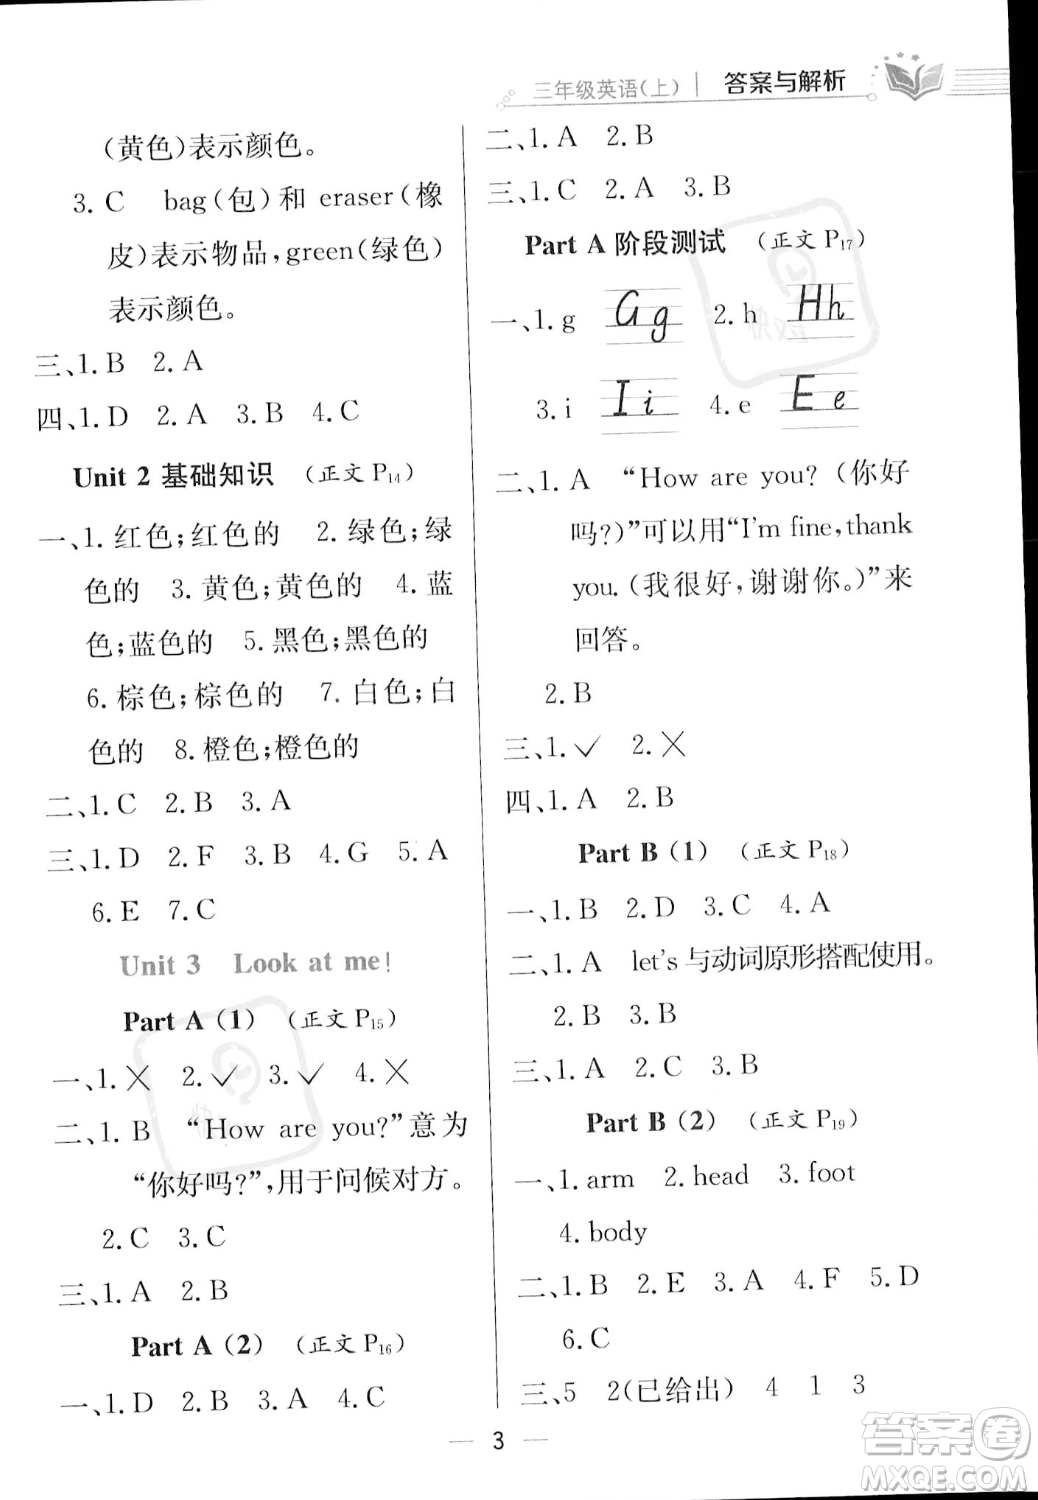 三年级英语(上) 答案与解析
(黄色)表示颜色。
3. C bag(包)和 eraser(橡
皮)表示物品,green(绿色)
表示颜色。
三、1. B 2. A
四、1. D 2. A 3. B 4. C
Unit 2 基础知识 (正文 P14)
一、1. 红色;红色的 2. 绿色;绿
色的 3. 黄色;黄色的 4. 蓝
色;蓝色的 5. 黑色;黑色的
6. 棕色;棕色的 7. 白色;白
色的 8. 橙色;橙色的
二、1. C 2. B 3. A
三、1. D 2. F 3. B 4. G 5. A
6. E 7. C
Unit 3 Look at me!
Part A (1) (正文 P15)
一、1. ✗ 2. ✓ 3. ✓ 4. ✗
二、1. B “How are you?”意为
“你好吗?”,用于问候对方。
2. C 3. C
三、1. A 2. B
Part A (2) (正文 P16)
一、1. D 2. B 3. A 4. C
二、1. A 2. B
三、1. C 2. A 3. B
Part A 阶段测试 (正文 P17)
一、1. g Gg 2. h Hh
3. i Ii 4. e Ee
二、1. A “How are you?(你好
吗?)”可以用“I'm fine, thank
you.(我很好,谢谢你。)”来
回答。
2. B
三、1. ✓ 2. ✗
四、1. A 2. B
Part B (1) (正文 P18)
一、1. B 2. D 3. C 4. A
二、1. A let's 与动词原形搭配使用。
2. B 3. B
三、1. A 2. C 3. B
Part B (2) (正文 P19)
一、1. arm 2. head 3. foot
4. body
二、1. B 2. E 3. A 4. F 5. D
6. C
三、5 2(已给出) 4 1 3
3
答案圈
MXQE.COM